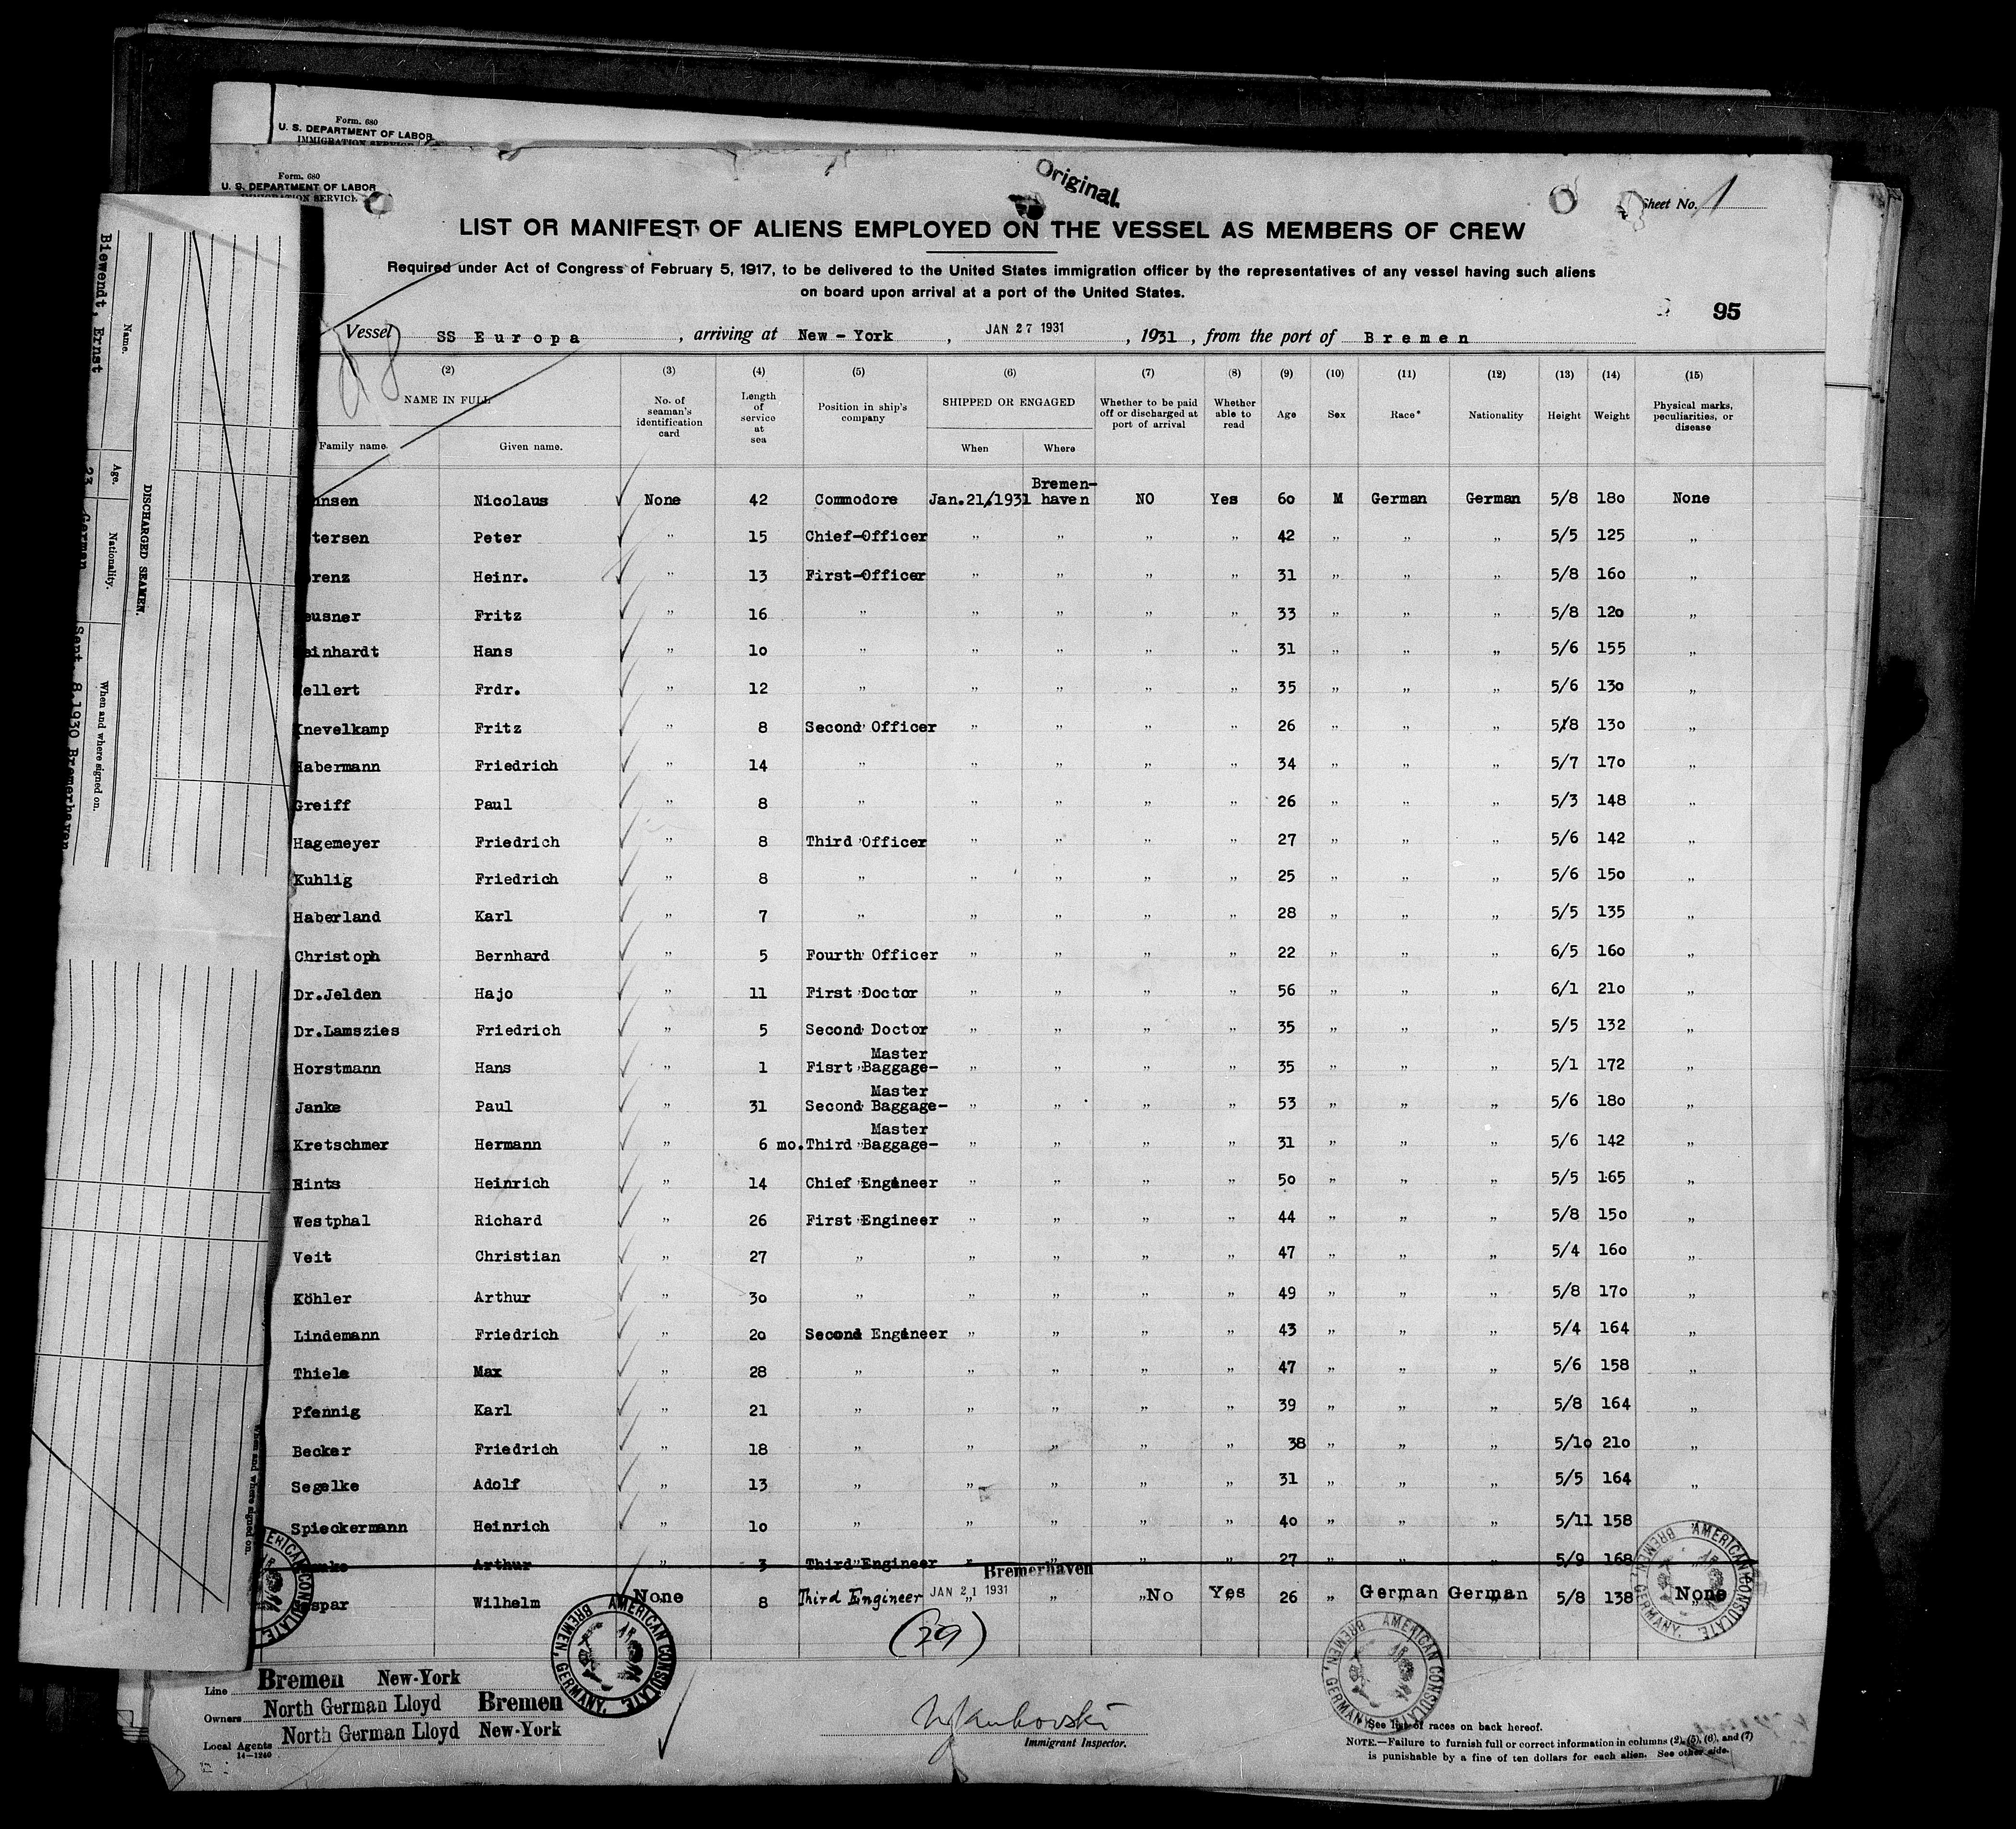 Form. 680
U. S. DEPARTMENT OF LABOR
IMMIGRATION SERVICE
Form. 680
U. S. DEPARTMENT OF LABOR
IMMIGRATION SERVICE
Original.
Sheet No. 1
LIST OR MANIFEST OF ALIENS EMPLOYED ON THE VESSEL AS MEMBERS OF CREW
Required under Act of Congress of February 5, 1917, to be delivered to the United States immigration officer by the representatives of any vessel having such aliens
on board upon arrival at a port of the United States.
95
Vessel SS Europa , arriving at New-York , JAN 27 1931 , 1931 , from the port of Bremen
(2) (3) (4) (5) (6) (7) (8) (9) (10) (11) (12) (13) (14) (15)
NAME IN FULL No. of seaman's identification card Length of service at sea Position in ship's company SHIPPED OR ENGAGED Whether to be paid off or discharged at port of arrival Whether able to read Age Sex Race* Nationality Height Weight Physical marks, peculiarities, or disease
Family name Given name. When Where
nsen Nicolaus None 42 Commodore Jan.21.1931 Bremen-haven NO Yes 60 M German German 5/8 180 None
tersen Peter " 15 Chief-Officer " " " " 42 " " " 5/5 125 "
renz Heinr. " 13 First-Officer " " " " 31 " " " 5/8 160 "
eusner Fritz " 16 " " " " " 33 " " " 5/8 120 "
einhardt Hans " 10 " " " " " 31 " " " 5/6 155 "
ellert Frdr. " 12 " " " " " 35 " " " 5/6 130 "
Knevelkamp Fritz " 8 Second Officer " " " " 26 " " " 5/8 130 "
Habermann Friedrich " 14 " " " " " 34 " " " 5/7 170 "
Greiff Paul " 8 " " " " " 26 " " " 5/3 148 "
Hagemeyer Friedrich " 8 Third Officer " " " " 27 " " " 5/6 142 "
Kuhlig Friedrich " 8 " " " " " 25 " " " 5/6 150 "
Haberland Karl " 7 " " " " " 28 " " " 5/5 135 "
Christoph Bernhard " 5 Fourth Officer " " " " 22 " " " 6/5 160 "
Dr.Jelden Hajo " 11 First Doctor " " " " 56 " " " 6/1 210 "
Dr.Lamszies Friedrich " 5 Second Doctor " " " " 35 " " " 5/5 132 "
Horstmann Hans " 1 Fisrt Baggage-Master " " " " 35 " " " 5/1 172 "
Janke Paul " 31 Second Baggage-Master " " " " 53 " " " 5/6 180 "
Kretschmer Hermann " 6 mo. Third Baggage-Master " " " " 31 " " " 5/6 142 "
Hints Heinrich " 14 Chief Engineer " " " " 50 " " " 5/5 165 "
Westphal Richard " 26 First Engineer " " " " 44 " " " 5/8 150 "
Veit Christian " 27 " " " " " 47 " " " 5/4 160 "
Köhler Arthur " 30 " " " " " 49 " " " 5/8 170 "
Lindemann Friedrich " 20 Second Engineer " " " " 43 " " " 5/4 164 "
Thiele Max " 28 " " " " " 47 " " " 5/6 158 "
Pfennig Karl " 21 " " " " " 39 " " " 5/8 164 "
Becker Friedrich " 18 " " " " " 38 " " " 5/10 210 "
Segelke Adolf " 13 " " " " " 31 " " " 5/5 164 "
Spieckermann Heinrich " 10 " " " " " 40 " " " 5/11 158 "
Arthur " 3 Third Engineer " " " " 27 " " " 5/9 168
spar Wilhelm None 8 Third Engineer JAN 21 1931 Bremerhaven No Yes 26 " German German 5/8 138 None
(29)
Line Bremen New-York
Owners North German Lloyd Bremen
Local Agents North German Lloyd New-York
14—1240
Immigrant Inspector.
* See list of races on back hereof.
NOTE.—Failure to furnish full or correct information in columns (2), (5), (6), and (7)
is punishable by a fine of ten dollars for each alien. See other side.
AMERICAN CONSULATE BREMEN, GERMANY.
AMERICAN CONSULATE BREMEN, GERMANY.
AMERICAN CONSULATE BREMEN, GERMANY.
DISCHARGED SEAMEN.
Name. Age. Nationality. When and where signed on.
Biewendt, Ernst 23 German Sept. 8.1930 Bremerhaven
When and where signed on.